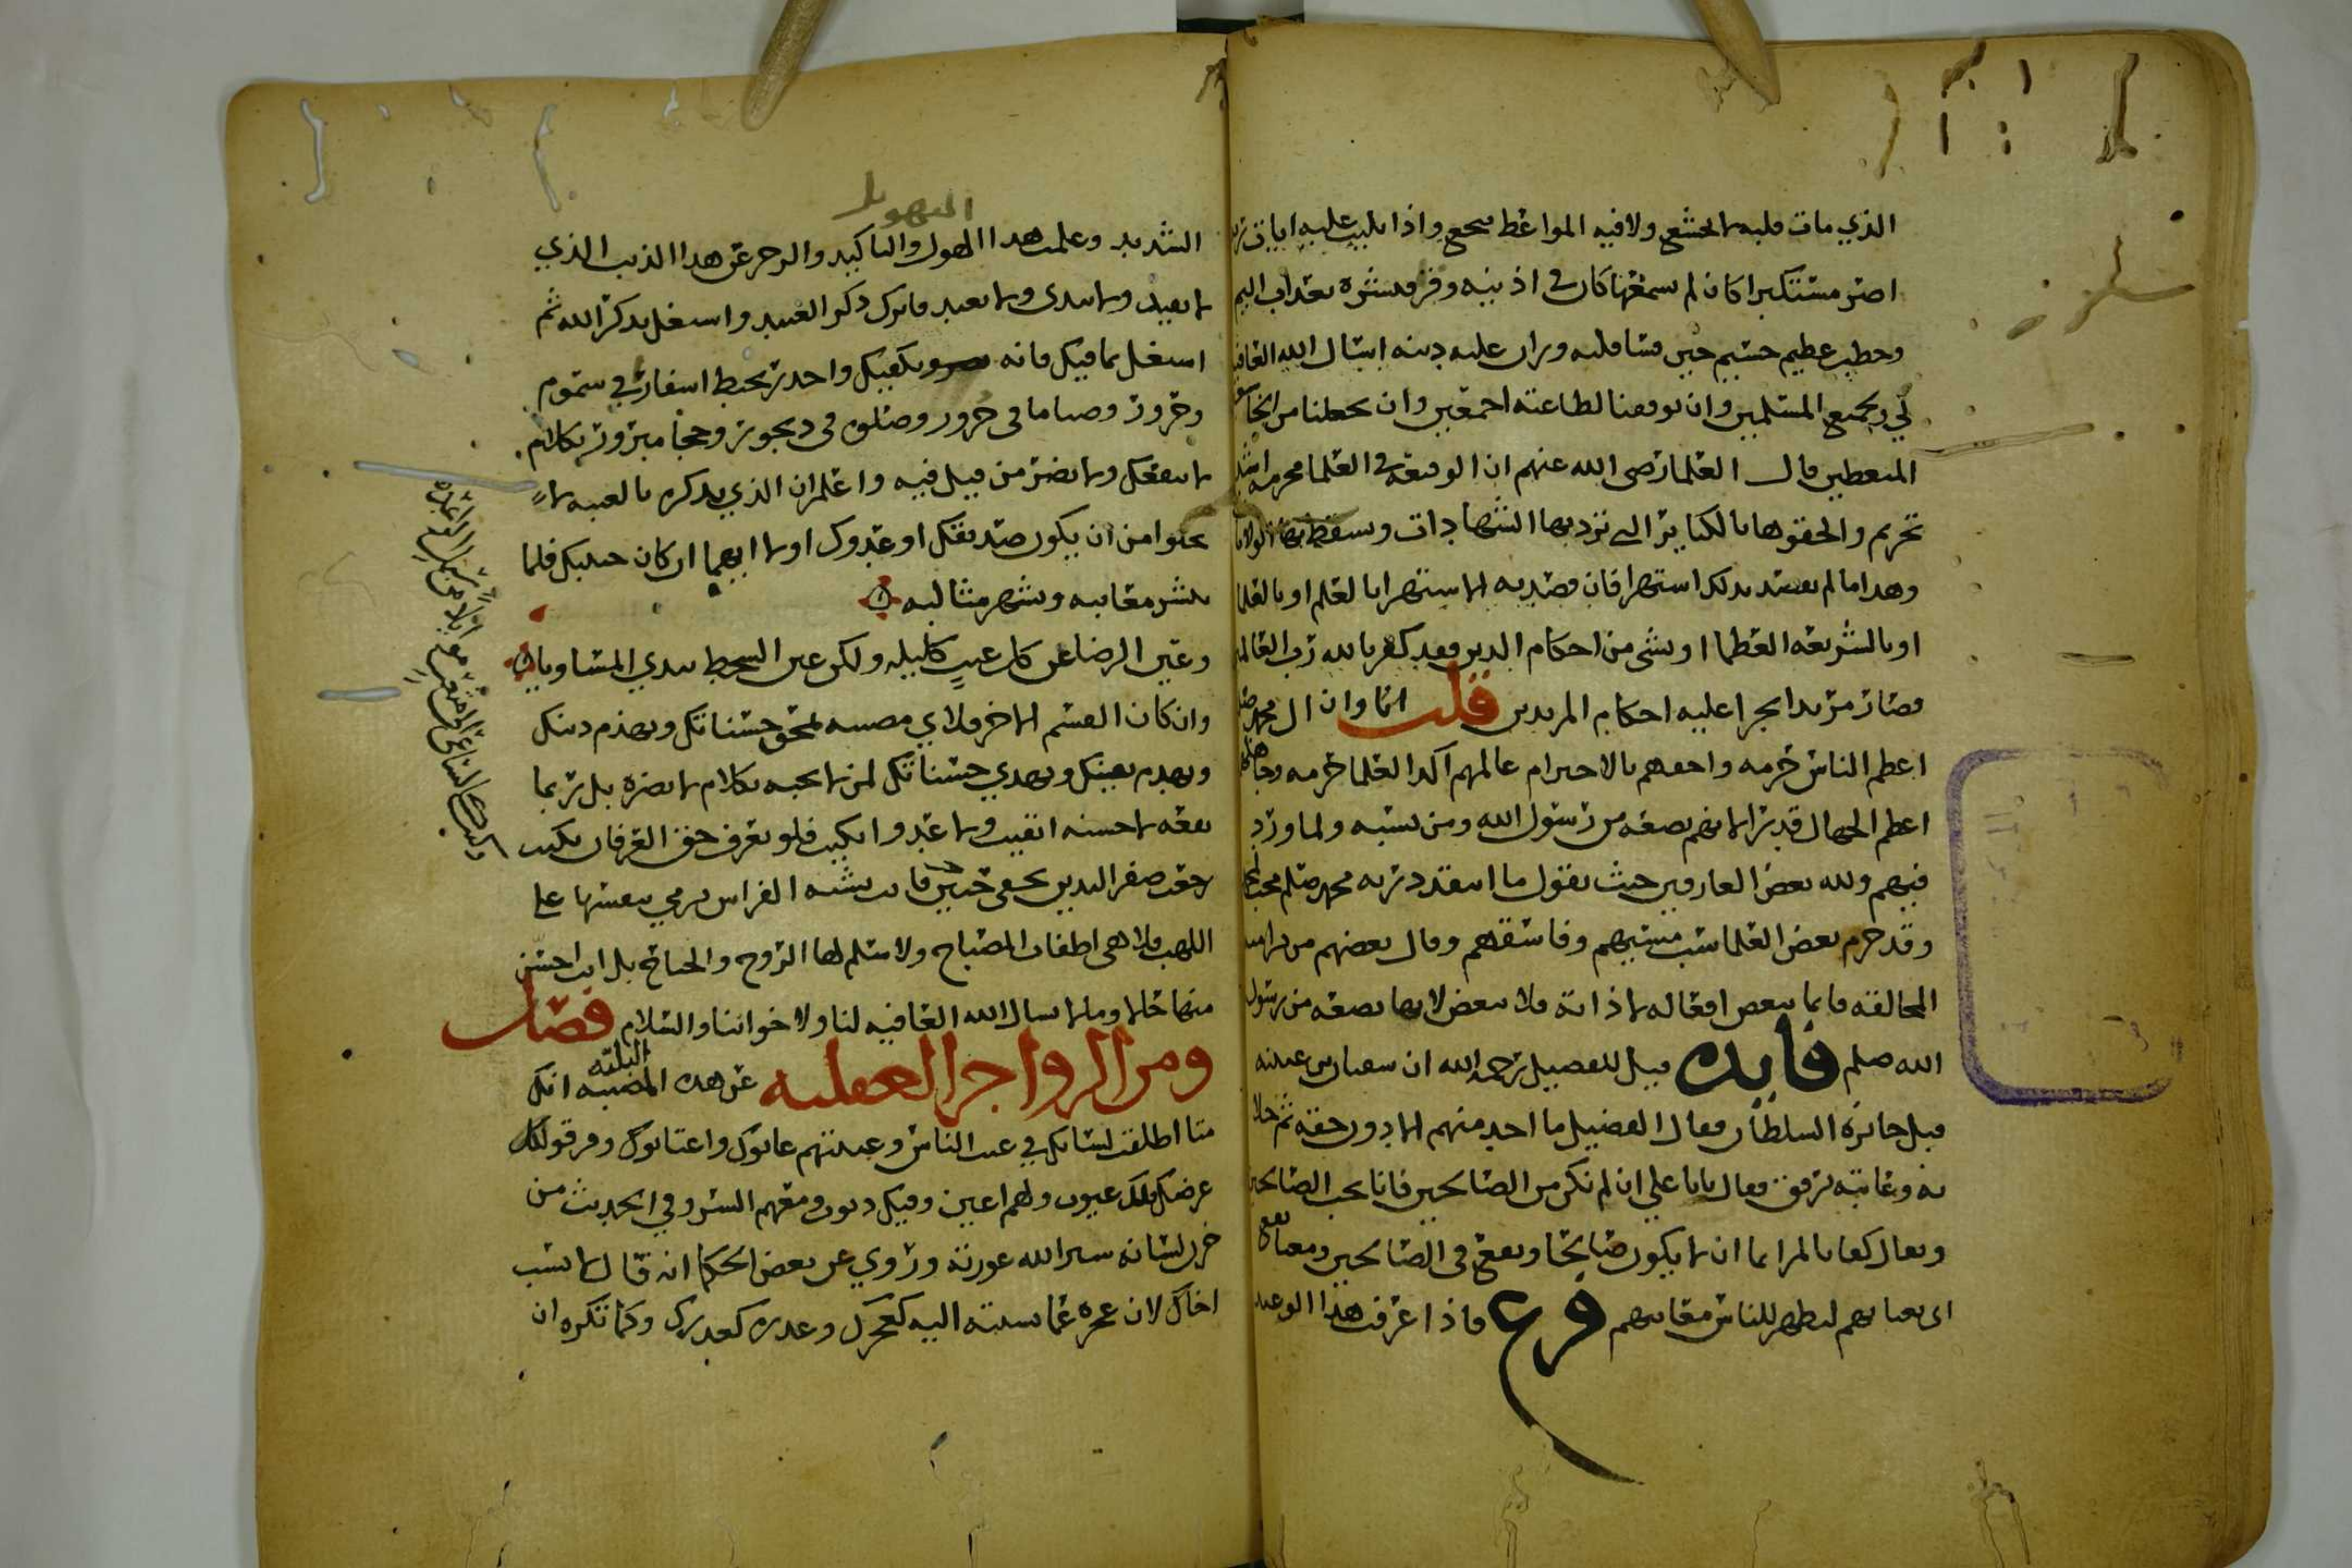 الذي مات قلبه لا يخشع ولا فيه المواعظ تنجع واذا تليت عليه ايات
اصر مستكبرا كان لم يسمعها كان في اذنيه وقر فبشره بعذاب اليم
وخطب عظيم جسيم حين قسا قلبه وران عليه دينه اسال الله العافية
لي ولجميع المسلمين وان يوفقنا لطاعته اجمعين وان يجعلنا من
المتعظين قال العلما رضي الله عنهم ان الوقيعة في العلما محرمة اشد
تحريم والحقوها بالكباير التي ترد بها الشهادات وتسقط بها الولايا
وهذا ما لم يقصد بذلك استهزا فان قصد به الاستهزا بالعلم او بالعلما
او بالشريعة العظما او بشي من احكام الدين فقد كفر بالله رب العالمين
وصار مرتدا يجرا عليه احكام المرتدين قلت اما وان ال محمد
اعظم الناس حرمه واحقهم بالاحترام عالمهم آكد العلما حرمه وجاهلهم
اعظم الجهال قدرا لانهم بضعة من رسول الله ومن نسبه ولما ورد
فيهم ولله بعض العارفين حيث يقول ما انتقد درية محمد صلعم
وقد حرم بعض العلما سب مسيهم وفاسقهم وقال بعضهم من
المخالفة فانما يبغض افعاله لا ذاته فلا يبغض لانها بضعة من رسول
الله صلعم فايده قيل للفضيل رحمه الله ان سفيان بن عيينه
قبل جائزة السلطان فقال الفضيل ما اخذ منهم الا دون حقه ثم خلا
به وعاتبه برفق فقال يا با علي ان لم نكن من الصالحين فانا نحب الصالحين
ويقال كفا بالمرا اثما ان لا يكون صالحا ويقع في الصالحين
اي يغتابهم ليظهر للناس معايبهم فرع فاذا عرفت هذا الوعيد
التهويل
الشديد وعلمت هذا الهول والتاكيد والزجر عن هذا الذنب الذي
لا يفيد ولا يبدي ولا يعيد فاترك ذكر العبيد واشتغل بذكر الله ثم
اشتغل بما فيك فانه يكفيك واحذر تحبط اسفارا في سموم
وحرور وصياما في حرور وصلوة في ديجور وحجا مبرور بكلام
لا ينفعك ولا يضر من قيل فيه واعلم ان الذي يذكره بالغيبه لا
يخلوا من ان يكون صديقك او عدوك او لا ايهما ان كان حبيبك فلما
تنشر معايبه وتشهر مثالبه
وعين الرضا عن كل عيب كليله ولكن عين السخط تبدي المساويا
وان كان القسم الاخر فلاي تمحق حسناتك وتهدم دينك
وتهدم يقينك وتهدي حسناتك لمن لا تحبه بكلام لا يضره بل ربما
نفعه لا حسنه ابقيت ولا عدوا ابكيت فلو تعرف حق العرفان بكيت
رجعت صفر اليدين بخفي حنين فانت تشبه الفراش ترمي بنفسها على
اللهب فلا هي اطفات المصباح ولا سلم لها الروح والجناح بل انت احسن
منها حالا ومالا نسال الله العافيه لنا ولاخواننا والسلام فصل
ومن الزواجر العقليه عن هذه المصيبه البليه انك
متا اطلقت لسانك في عيب الناس وغيبتهم عابوك واعتابوك ومزقو لك
عرضك فلك عيوب ولهم اعين وفيك ذنوب ومعهم السن وفي الحديث من
خزن لسانه ستر الله عورته وروي عن بعض الحكما انه قال لا تسب
اخاك لان عجزه عما نسبته اليه كعجزك وعذره كعذرك وكما تكره ان